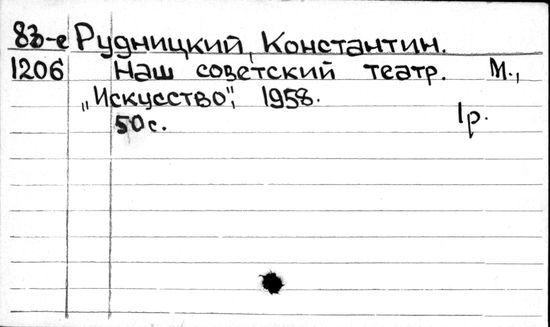 8з-е Рудницкий, Константин.
1206 Наш советский театр. М.,
„Искусство", 1958.
50 с. 1р.